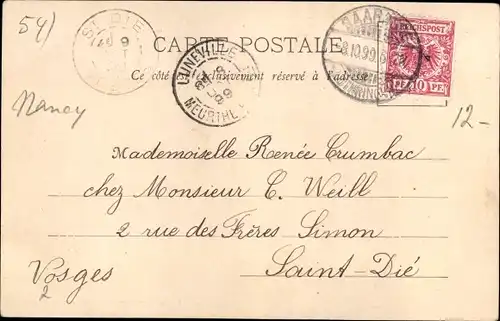 54)
ST DIE
9
CARTE POSTALE
Ce côté exclusivement réservé à l'adresse
LUNEVILLE
8
99
MEURTHE
SAAR
8.10.99
REICHSPOST
10 PF
Nancy
12-
Mademoiselle Renée Crumbac
chez Monsieur C. Weill
2 rue des Frères Simon
Saint-Dié
Vosges
2